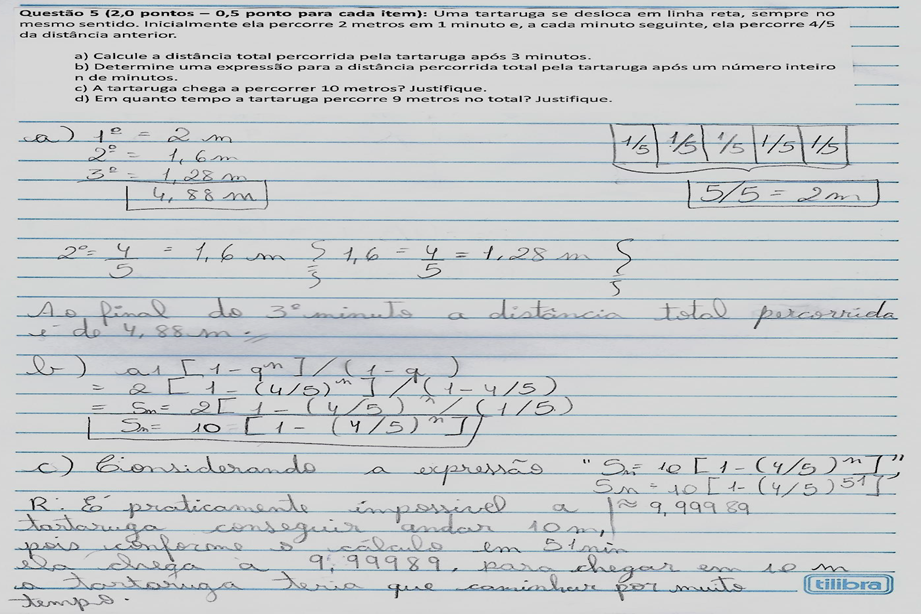 Questão 5 (2,0 pontos – 0,5 ponto para cada item): Uma tartaruga se desloca em linha reta, sempre no
mesmo sentido. Inicialmente ela percorre 2 metros em 1 minuto e, a cada minuto seguinte, ela percorre 4/5
da distância anterior.
a) Calcule a distância total percorrida pela tartaruga após 3 minutos.
b) Determine uma expressão para a distância percorrida total pela tartaruga após um número inteiro
n de minutos.
c) A tartaruga chega a percorrer 10 metros? Justifique.
d) Em quanto tempo a tartaruga percorre 9 metros no total? Justifique.
a) 1º = 2 m
2º = 1,6 m
3º = 1,28 m
4,88 m
1/5 1/5 1/5 1/5 1/5
5/5 = 2m
2º = 4/5 = 1,6 m 1,6 = 4/5 = 1,28 m
Ao final do 3º minuto a distância total percorrida
é de 4,88 m.
b) a1 [1-qⁿ] / (1-q)
= 2 [1-(4/5)ⁿ] / (1-4/5)
= Sn = 2[1-(4/5)ⁿ / (1/5)
Sn = 10 = [1-(4/5)ⁿ]
c) Considerando a expressão "Sn = 10 [1-(4/5)ⁿ]",
Sn = 10 [1-(4/5)⁵¹]
≈ 9,99989
R: É praticamente impossivel a
tartaruga conseguir andar 10 m,
pois conforme o cálculo em 51 min
ela chega à 9,99989, para chegar em 10 m
a tartaruga teria que caminhar por muito
tempo.
tilibra